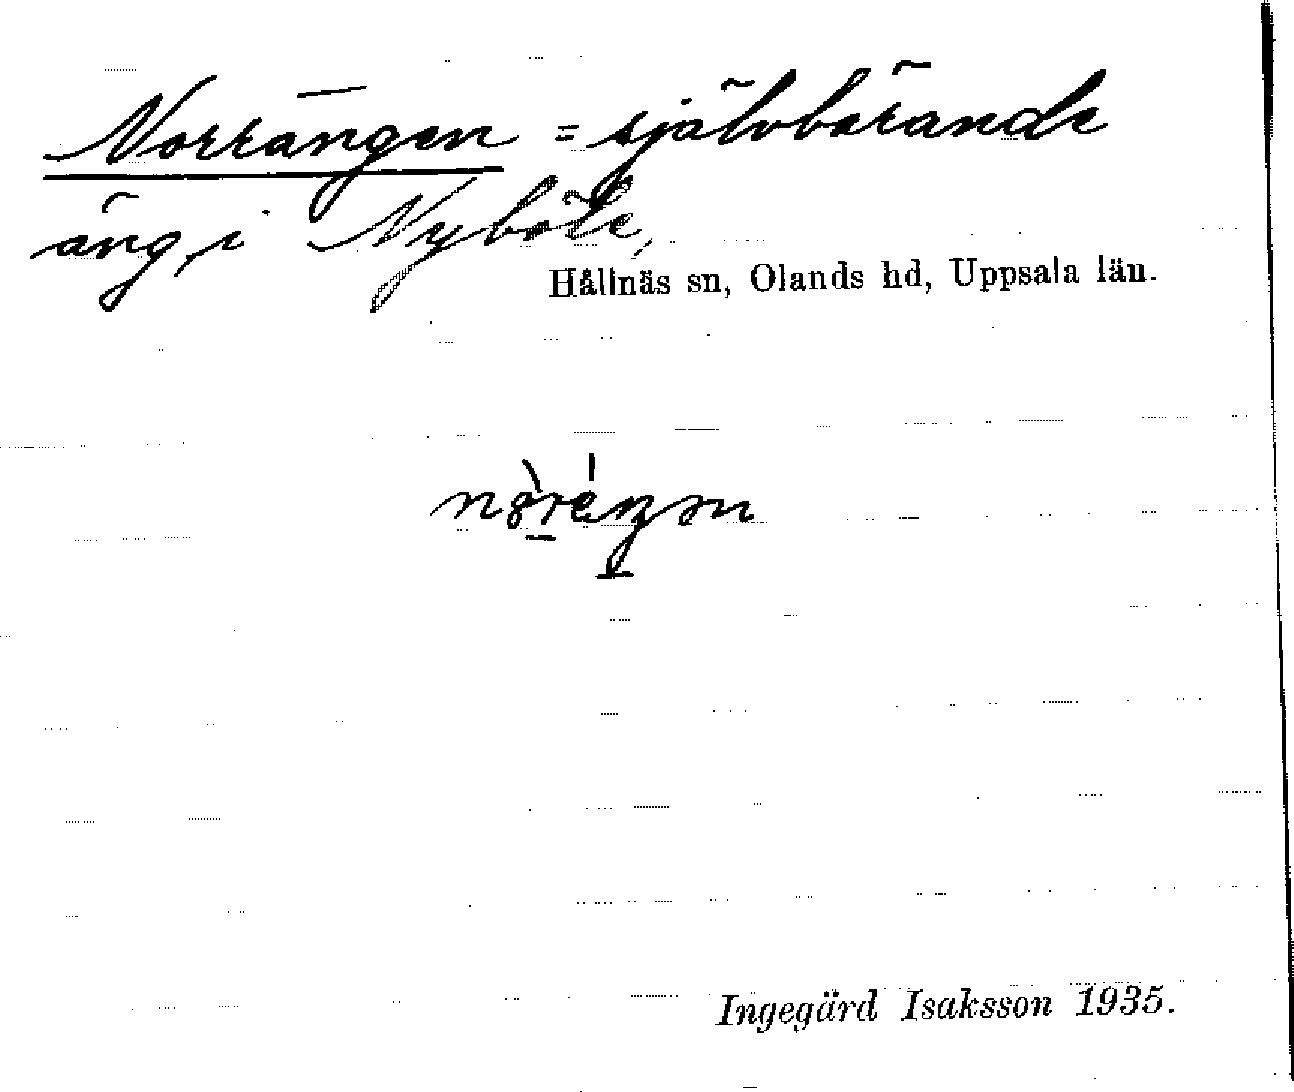 Norrängen = självbärande
äng, i Nyböle,
Hållnäs sn, Olands hd, Uppsala län.
Ingegärd Isaksson 1935.